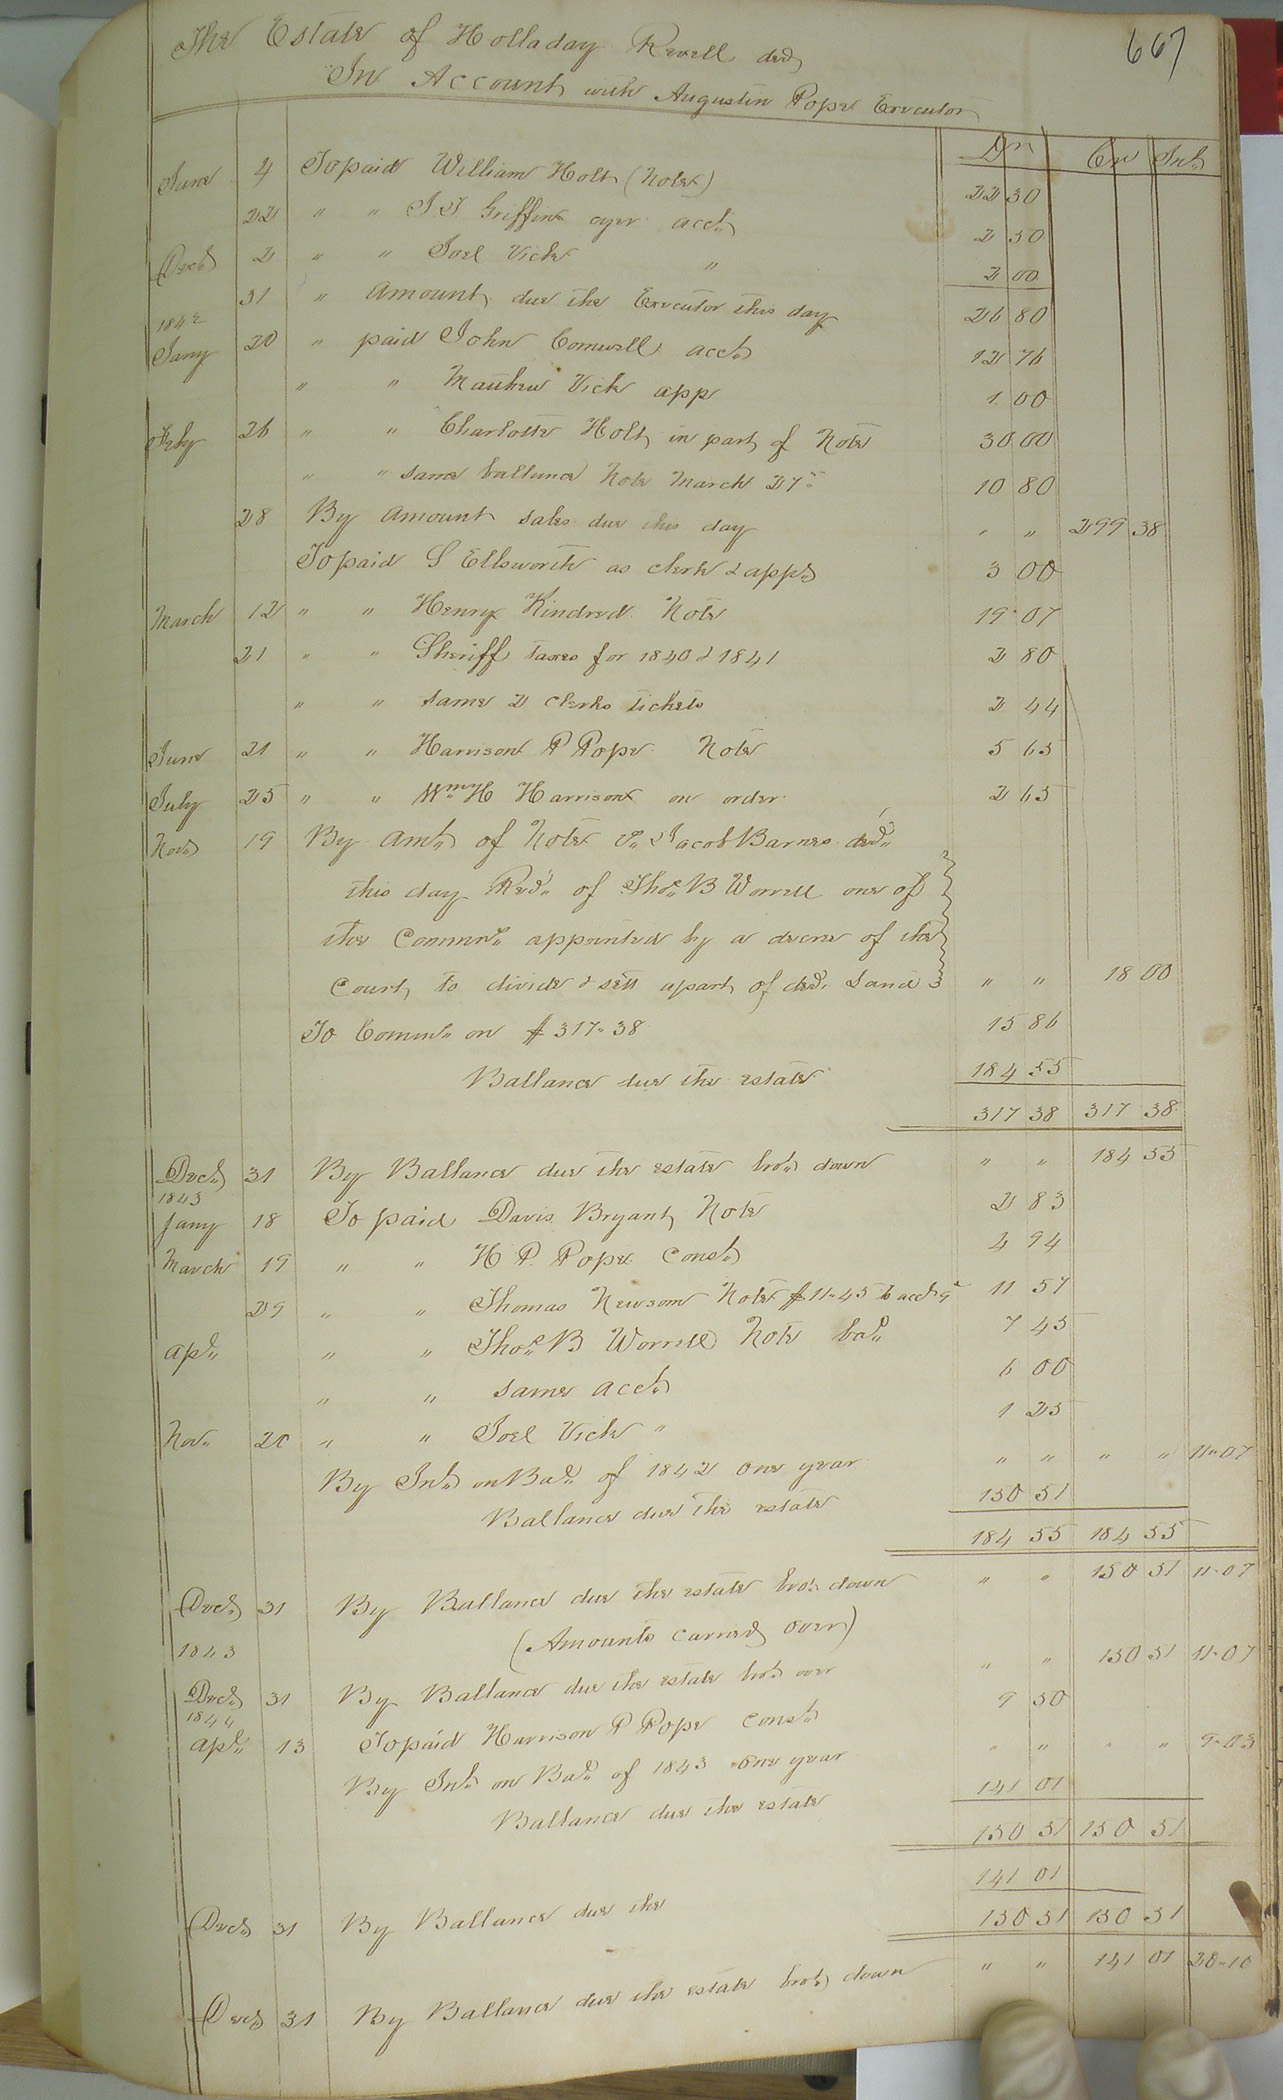 667
The Estate of Holladay Revell decd
In Account with Augustin Pope Executor
Dr Cr Int.
June 4 To paid William Holt (Note) 22 30
22 " " J J Griffin cyer acct. 2 50
Decr. 2 " " Joel Vick " 2 00
31 " Amount due the Executor this day 26 80
1842
Jany 20 " paid John Cornwell acct. 12 76
" " Matthew Vick app 1 00
Feby 26 " " Charlotte Holt in part of Note 30 00
" " same ballance Note March 27th 10 80
28 By Amount sales due this day " " 299 38
To paid S Ellsworth as clerk & appr. 3 00
March 12 " " Henry Kindred Note 19 07
21 " " Sheriff taxes for 1840 & 1841 2 80
" " same 2 clerks tickets 2 44
June 21 " " Harrison P Pope Note 5 65
July 25 " " Wm. H Harrison on order 2 65
Novr 19 By Amt. of Note vs. Jacob Barnes decd.
this day Recd. of Thos. B Worrell one of
the Commrs. appointed by a decree of the
Court to divide & sett apart of decd. Land " " 18 00
To Commn. on $317.38 15 86
Ballance due the estate 184 55
317 38 317 38
Decr. 31 By Ballance due the estate brot. down " " 184 55
1843
Jany 18 To paid Davis Bryant Note 2 83
March 19 " " H P Pope Const. 4 94
29 " " Thomas Newsom Note $11.45 & acct 9c 11 57
Apl. " " Thos. B Worrell Note bal. 7 45
" " same acct. 6 00
Nov. 20 " " Joel Vick " 1 25
By Int. on Bal. of 1842 one year " " " " 11.07
Ballance due the estate 150 51
184 55 184 55
Decr. 31 By Ballance due the estate brot. down " " 150 51 11.07
(Amounts carried over)
1843
Decr. 31 By Ballance due the estate brot. over " " 150 51 11.07
1844
Apl. 13 To paid Harrison P Pope Const. 9 50
By Int. on Bal. of 1843 one year " " " " 9.03
Ballance due the estate 141 01
150 51 150 51
141 01
Decr. 31 By Ballance due the 150 51 150 51
Decr 31 By Ballance due the estate brot. down " " 141 01 20.10